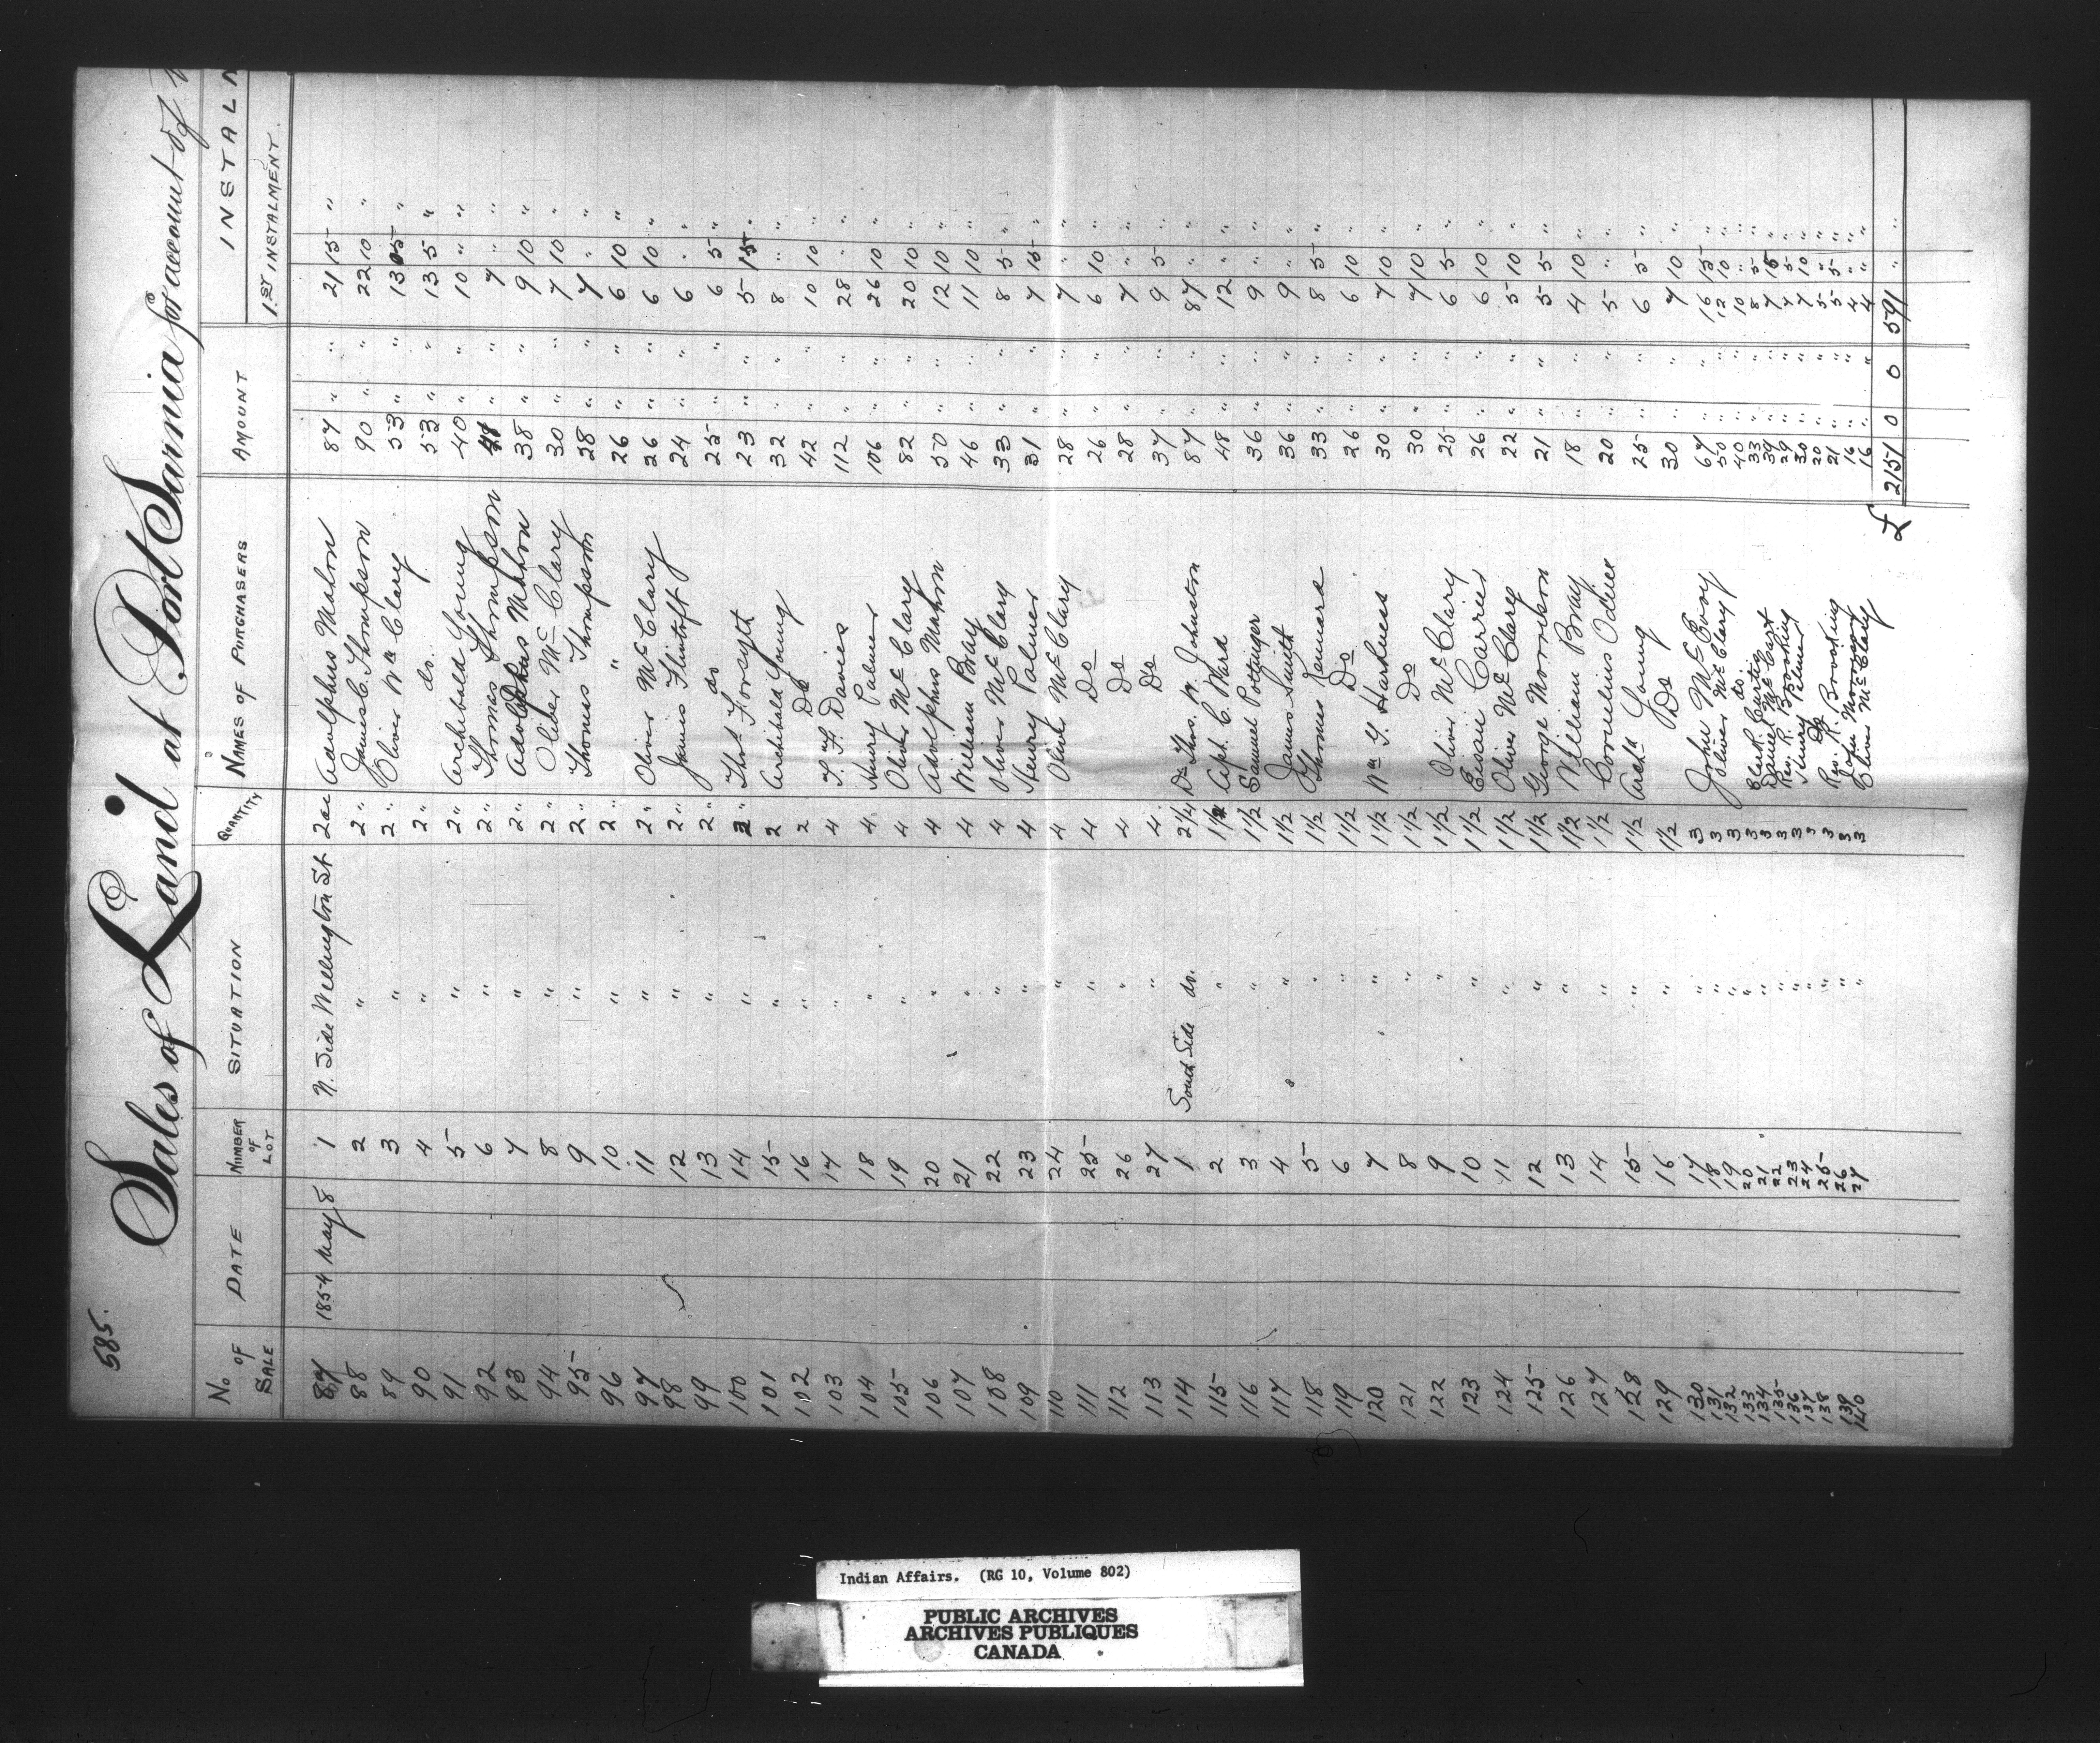 585.
Sales of Land at Port Sarnia for account of
No. OF SALE | DATE | NUMBER OF LOT | SITUATION | QUANTITY | NAMES OF PURCHASERS | AMOUNT | INSTALM
1.ST INSTALMENT.
87 1854 May 8 1 N. Side Wellington St 2 ac Adulphus Mahon 87 " " 21 15 "
88 2 " 2 " James C. Thompson 90 " " 22 10 "
89 3 " 2 " Oliver Wm Clary 53 " " 13 5 "
90 4 " 2 " do. 53 " " 13 5 "
91 5 " 2 " Archibald Young 40 " " 10 " "
92 6 " 2 " Thomas Thompson " " 7 " "
93 7 " 2 " Adolphus Mahon 38 " " 9 10 "
94 8 " 2 " Oliber Mc Clary 30 " " 7 10 "
95 9 " 2 " Thomas Thompson 28 " " 7 " "
96 10 " 2 " " 26 " " 6 10 "
97 11 " 2 " Oliver Mc Clary 26 " " 6 10 "
98 12 " 2 " James Flintoft 24 " " 6 " "
99 13 " 2 " do 25 " " 6 5 "
100 14 " 2 " Thos. Forsyth 23 " " 5 15 "
101 15 " 2 Archibald Young 32 " " 8 " "
102 16 " 2 Do 42 " " 10 10 "
103 17 " 4 T. F. Davies 112 " " 28 " "
104 18 " 4 Henry Palmer 106 " " 26 10 "
105 19 " 4 Oliver Mc Clary 82 " " 20 10 "
106 20 " 4 Adolphus Mahon 50 " " 12 10 "
107 21 " 4 William Bray 46 " " 11 10 "
108 22 " 4 Oliver Mc Clary 33 " " 8 5 "
109 23 " 4 Henry Palmer 31 " " 7 15 "
110 24 " 4 Oliver Mc Clary 28 " " 7 " "
111 25 " 4 Do 26 " " 6 10 "
112 26 " 4 Do 28 " " 7 " "
113 27 " 4 Do 37 " " 9 5 "
114 1 South Side do. 2 1/4 Dr Thos. W. Johnston 87 " " 87 " "
115 2 " 1 1/2 Aph. C. Ward 48 " " 12 " "
116 3 " 1 1/2 Samuel Pottinger 36 " " 9 " "
117 4 " 1 1/2 James Smith 36 " " 9 " "
118 5 " 1 1/2 Thomas Kennard 33 " " 8 5 "
119 6 " 1 1/2 Do 26 " " 6 10 "
120 7 " 1 1/2 Wm G. Harkness 30 " " 7 10 "
121 8 " 1 1/2 Do 30 " " 7 10 "
122 9 " 1 1/2 Oliver Mc Clary 25 " " 6 5 "
123 10 " 1 1/2 Carrier 26 " " 6 10 "
124 11 " 1 1/2 Oliver Mc Clary 22 " " 5 10 "
125 12 " 1 1/2 George Morrison 21 " " 5 5 "
126 13 " 1 1/2 William Bray 18 " " 4 10 "
127 14 " 1 1/2 Cornelius 20 " " 5 " "
128 15 " 1 1/2 Archd Young 25 " " 6 5 "
129 16 " 1 1/2 Do 30 " " 7 10 "
130 17 " 3 John Mc Evoy 67 " " 16 15 "
131 18 " 3 Oliver Mc Clary 50 " " 12 10 "
132 19 " 3 do. 40 " " 10 " "
133 20 " 3 Clark Curtis 33 " " 8 5 "
134 21 " 3 Daniel McCart " " 7 15 "
135 22 " 3 Rev. R. Brooking 29 " " 7 5 "
136 23 " 3 Henry Palmer 30 " " 7 10 "
137 24 " 3 Do 20 " " 5 " "
138 25 " 3 Rev. R. Brooking 21 " " 5 5 "
139 26 " 3 John 16 " " 4 " "
140 27 " 3 Oliver Mc Clary 16 " " 4 " "
£ 2151 0 0 591 " "
Indian Affairs. (RG 10, Volume 802)
PUBLIC ARCHIVES
ARCHIVES PUBLIQUES
CANADA